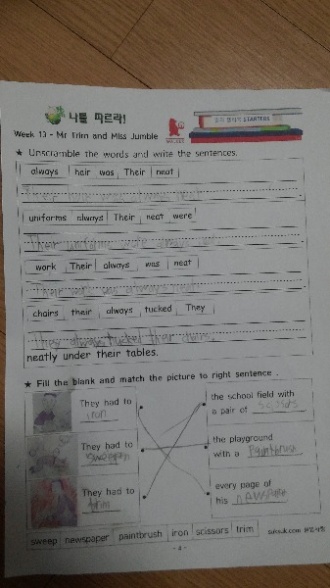 나를 따르라!
Week 13 - Mr Trim and Miss Jumble
★ Unscramble the words and write the sentences.
always hair was Their neat
Their hair was always neat
uniforms always Their neat were
Their uniforms were always
work Their always was neat
Their work was always neat
chairs their always tucked They
They always tucked their chairs
neatly under their tables.
★ Fill the blank and match the picture to right sentence .
They had to
iron
the school field with
a pair of scissors
They had to
sweep
the playground
with a Paintbrush
They had to
trim
every page of
his newspaper
sweep newspaper paintbrush iron scissors trim
- 4 -